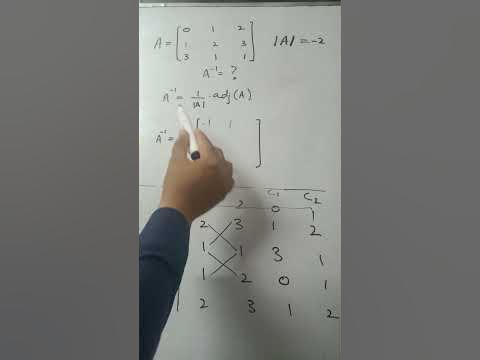 A = [ 0 1 2 |A| = -2
1 2 3
3 1 1 ]
A⁻¹ = ?
A⁻¹ = 1/|A| . adj(A)
A⁻¹ = [ -1 1 ]
C₁ C₂
2 0 1
2 3 1 2
1 1 3 1
1 2 0 1
2 3 1 2